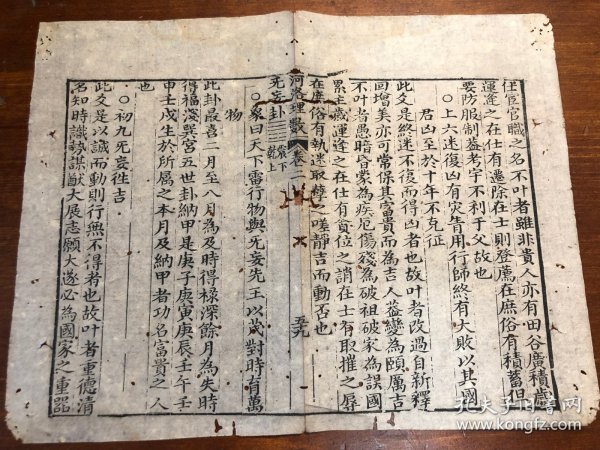 仕宦官職之名不叶者雖非貴人亦有田谷廣積歲
運逢之在仕有遷除在士則登薦在庶俗有積蓄但
要防服制蓋考字不利于父故也
○上六迷復凶有灾眚用行師終有大敗以其國
君凶至於十年不克征
此爻是終迷不復而得凶者也故叶者改過自新釋
回增美亦可常保其富貴而為吉人益變為頤厲吉
不叶者愚暗昏蒙為疾厄傷殘為破祖破家為誤國
累主歲運逢之在仕有貪位之誚在士有取摧之辱
在庶俗有執迷取
之嗟靜吉而動否也
河洛理數
卷二
五九
无妄卦
震下
乾上
○象曰天下雷行物與无妄先王以茂對時育萬
物
此卦最喜二月至八月為及時得祿深餘月為失時
得福淺巽宮五世卦納甲是庚子庚寅庚辰壬午壬
申壬戌生於所屬之本月及納甲者功名富貴之人
也
○初九无妄往吉
此爻是以誠而動則行無不得者也故叶者重德清
名知時識勢謀猷大展志願大遂必為國家之重器
孔夫子旧书网